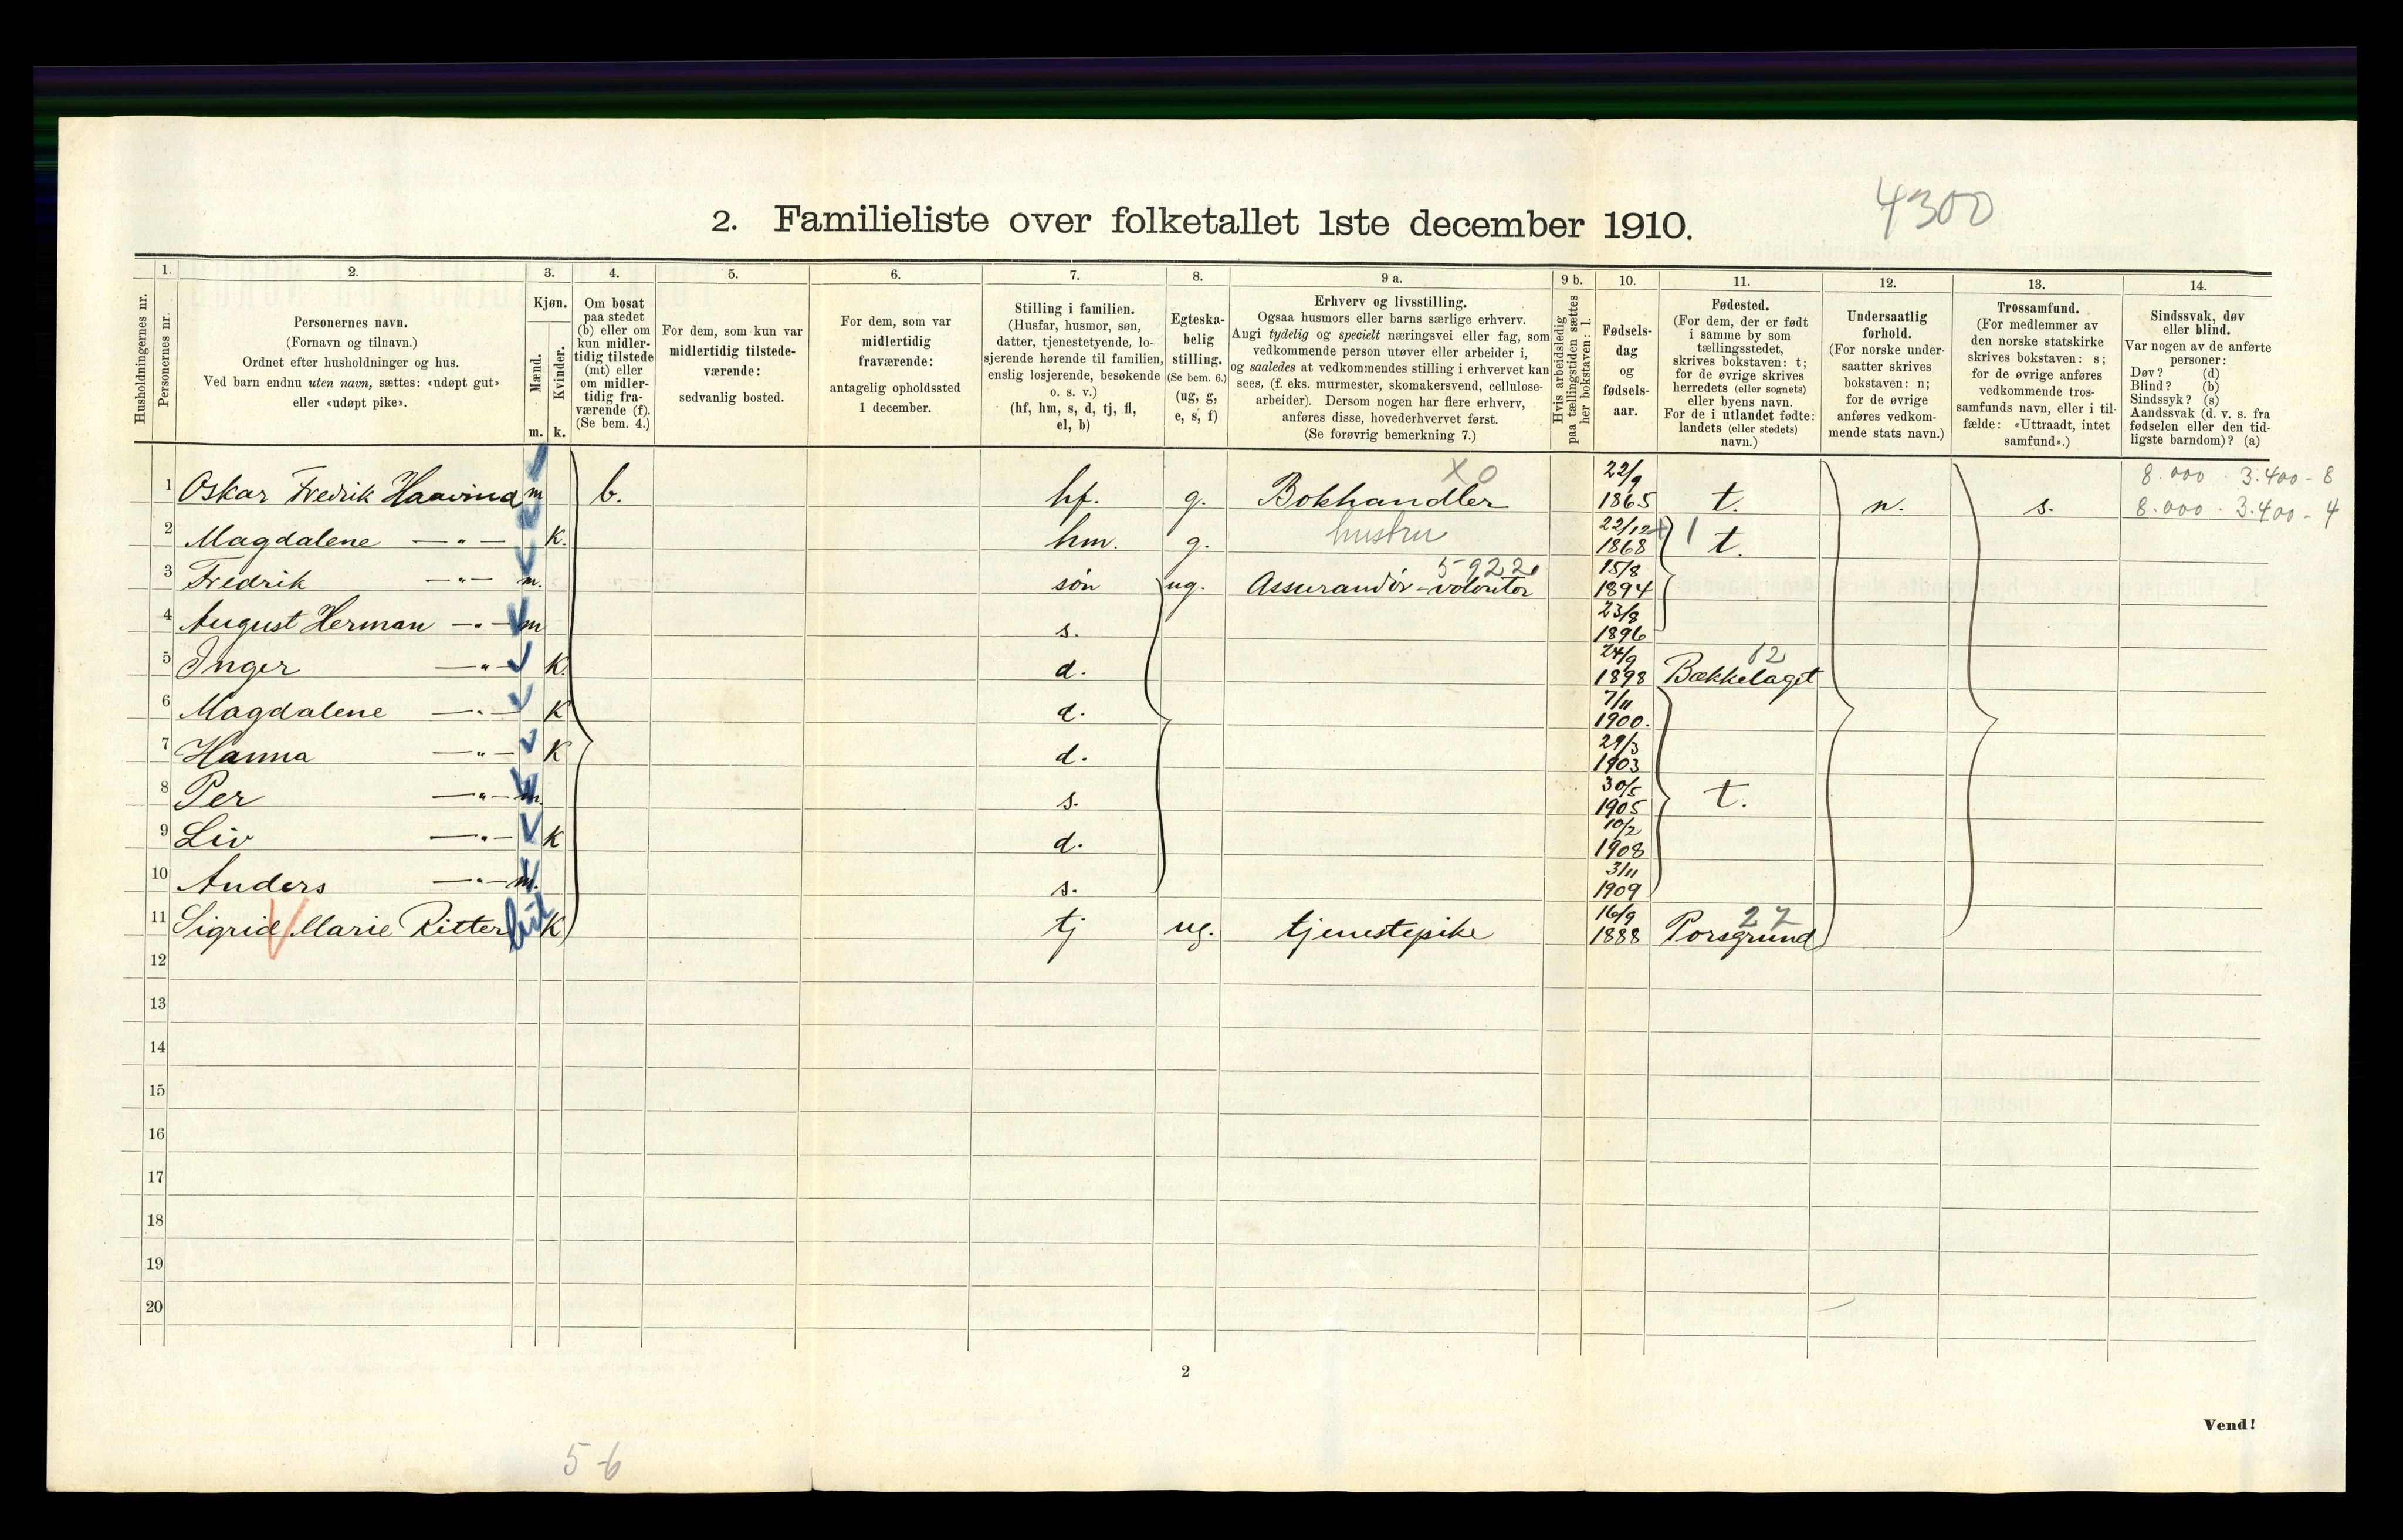 4300
2. Familieliste over folketallet 1ste december 1910.
Husholdningernes nr.
1. Personernes nr.
2. Personernes navn.
(Fornavn og tilnavn.)
Ordnet efter husholdninger og hus.
Ved barn endnu uten navn, sættes: «udøpt gut»
eller «udøpt pike».
3. Kjøn.
Mænd. m.
Kvinder. k.
4. Om bosat
paa stedet
(b) eller om
kun midler-
tidig tilstede
(mt) eller
om midler-
tidig fra-
værende (f).
(Se bem. 4.)
5. For dem, som kun var
midlertidig tilstede-
værende:
sedvanlig bosted.
6. For dem, som var
midlertidig
fraværende:
antagelig opholdssted
1 december.
7. Stilling i familien.
(Husfar, husmor, søn,
datter, tjenestetyende, lo-
sjerende hørende til familien,
enslig losjerende, besøkende
o. s. v.)
(hf, hm, s, d, tj, fl,
el, b)
8. Egteska-
belig
stilling.
(Se bem. 6.)
(ug, g,
e, s, f)
9 a. Erhverv og livsstilling.
Ogsaa husmors eller barns særlige erhverv.
Angi tydelig og specielt næringsvei eller fag, som
vedkommende person utøver eller arbeider i,
og saaledes at vedkommendes stilling i erhvervet kan
sees, (f. eks. murmester, skomakersvend, cellulose-
arbeider). Dersom nogen har flere erhverv,
anføres disse, hovederhvervet først.
(Se forøvrig bemerkning 7.)
9 b. Hvis arbeidsledig
paa tællingstiden sættes
her bokstaven: l.
10. Fødsels-
dag
og
fødsels-
aar.
11. Fødested.
(For dem, der er født
i samme by som
tællingsstedet,
skrives bokstaven: t;
for de øvrige skrives
herredets (eller sognets)
eller byens navn.
For de i utlandet fødte:
landets (eller stedets)
navn.)
12. Undersaatlig
forhold.
(For norske under-
saatter skrives
bokstaven: n;
for de øvrige
anføres vedkom-
mende stats navn.)
13. Trossamfund.
(For medlemmer av
den norske statskirke
skrives bokstaven: s;
for de øvrige anføres
vedkommende tros-
samfunds navn, eller i til-
fælde: «Uttraadt, intet
samfund».)
14. Sindssvak, døv
eller blind.
Var nogen av de anførte
personer:
Døv? (d)
Blind? (b)
Sindssyk? (s)
Aandssvak (d. v. s. fra
fødselen eller den tid-
ligste barndom)? (a)
1 Oskar Fredrik Haavind m b. hf. g. Bokhandler X0 22/9 1865 t. n. s. 8.000 . 3.400 - 8
8.000 . 3.400 - 4
2 Magdalene —"— K. hm. g. hustru 22/12 1868 1 t.
3 Fredrik —"— m. søn ug. Assurandør-volontør 5-922 15/8 1894
4 August Herman —"— m s. 23/8 1896
5 Inger —"— K. d. 24/9 1898 Bækkelaget 12
6 Magdalene —"— K d. 7/11 1900.
7 Hanna —"— K d. 29/3 1903
8 Per —"— m. s. 30/5 1905 t.
9 Liv —"— K d. 10/2 1908
10 Anders —"— m. s. 3/11 1909
11 Sigrid Marie Ritter K tj ug. tjenestepike 16/9 1888 Porsgrund 27
12
13
14
15
16
17
18
19
20
2
Vend!
5-6